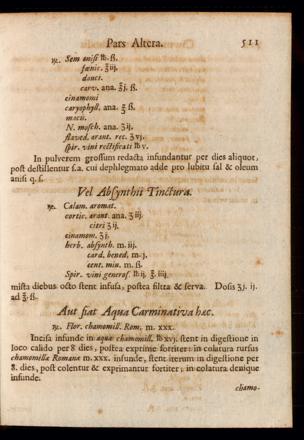 Pars Altera. 511
℞. Sem anisi ℔. ß.
fœnic. ℥iij.
dauci.
carv. ana. ℥j. ß.
cinamomi
caryophyll. ana. ℥ ß.
macis.
N. mosch. ana. ʒij.
flaved. arant. rec. ʒvj.
spir. vini rectificati ℔v.
In pulverem grossum redacta infundantur per dies aliquot,
post destillentur s.a. cui dephlegmato adde pro lubitu sal & oleum
anisi q. s.
Vel Absynthii Tinctura.
℞. Calam. aromat.
cortic. arant. ana. ʒiij.
citri ʒij.
cinamom. ʒj.
herb. absynth. m. iij.
card. bened. m. j.
cent. min. m. ß.
Spir. vini generos. ℔ij. ℥. iiij.
mista diebus octo stent infusa, postea filtra & serva. Dosis ʒj. ij.
ad ℥. ß.
Aut fiat Aqua Carminativa hæc.
℞. Flor. chamomill. Rom. m. xxx.
Incisa infunde in aquæ chamomill. ℔xvj. stent in digestione in
loco calido per 8 dies, postea exprime fortiter: in colatura rursus
chamomillæ Romanæ m. xxx. infunde, stent iterum in digestione per
8. dies, post colentur & exprimantur fortiter; in colatura denique
infunde.
chamo-